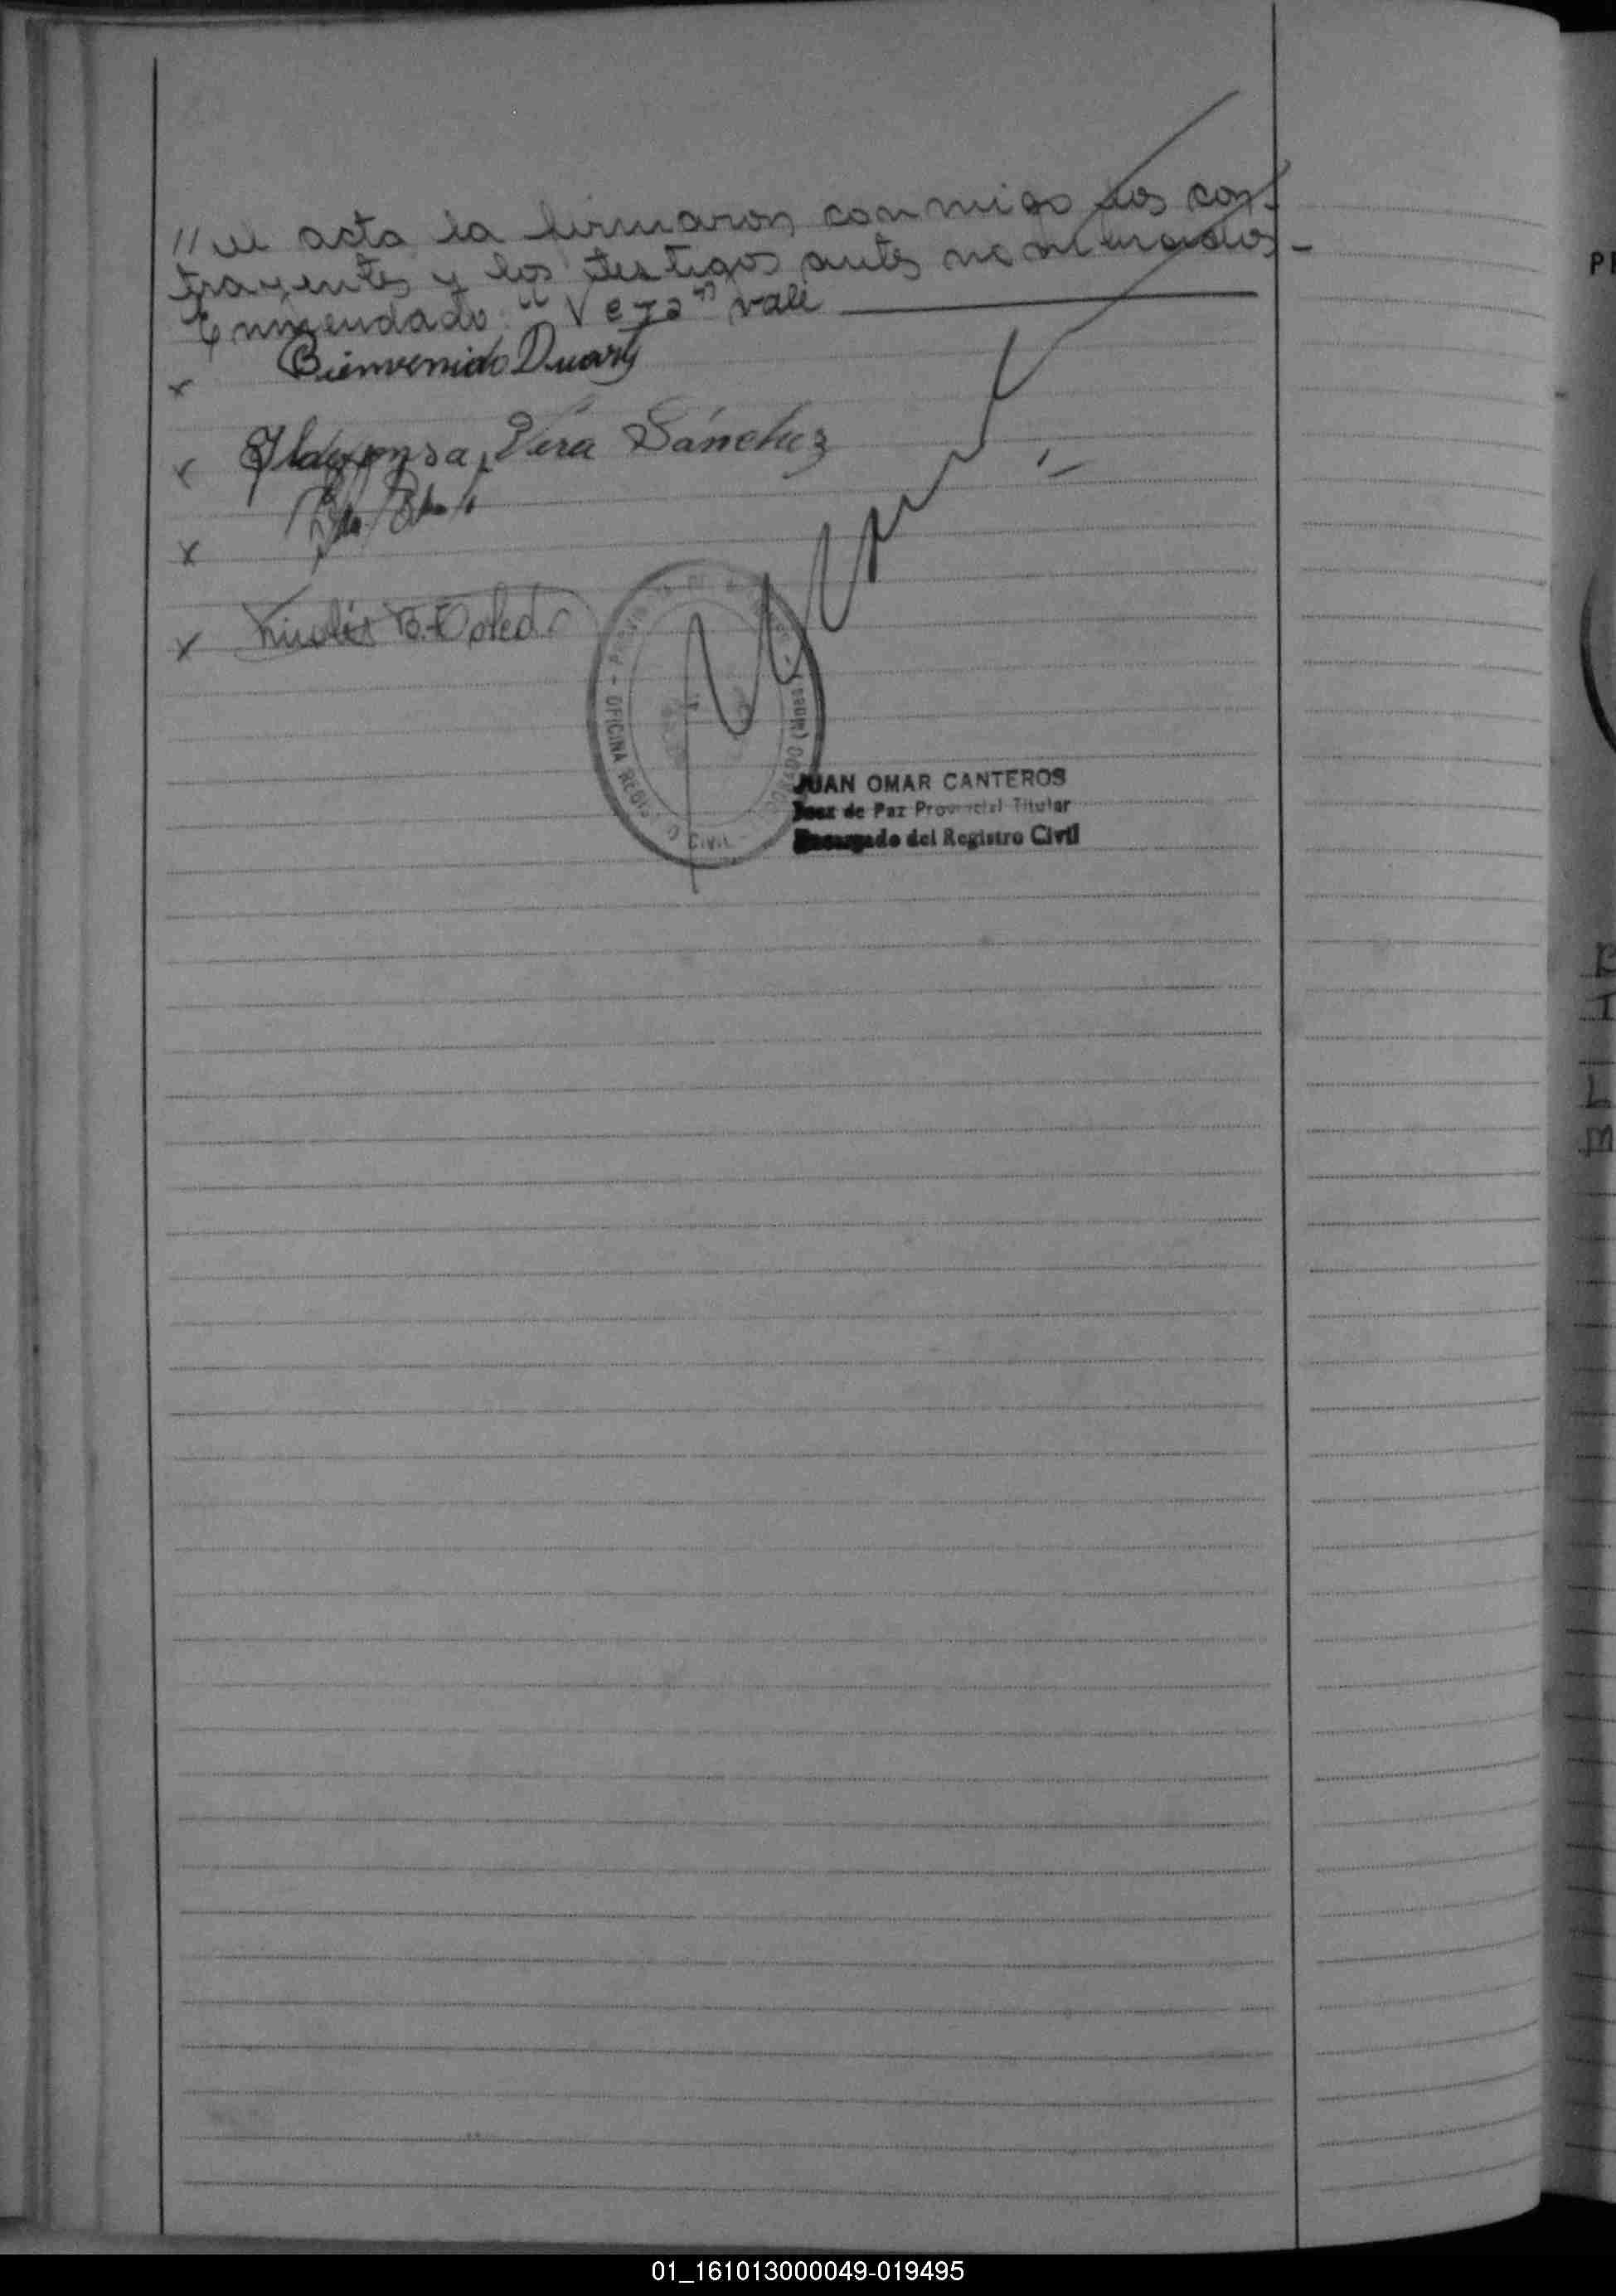 // el acta la firmaron conmigo los con-
trayentes y los testigos antes nominados.-
Enmendado: "Vera" vale
x Bienvenido Duarte
x Ildefonsa Vera Sánchez
x
x Toledo
OFICINA REGISTRO CIVIL
JUAN OMAR CANTEROS
Juez de Paz Provincial Titular
Encargado del Registro Civil
01_161013000049-019495